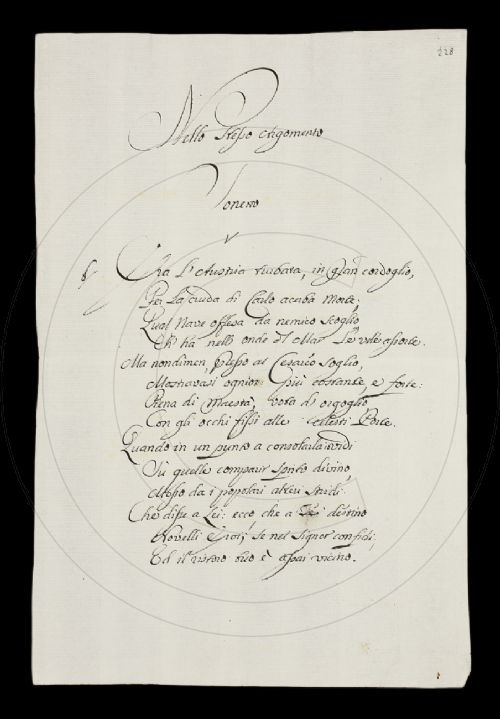 228
Nello stesso Argomento
Sonetto
Era l'Austria turbata, in gran cordoglio,
Per la cruda di Carlo acerba Morte;
Qual Nave offesa da nemico scoglio
Ch' hà nell' onde del Mar le vele
Ma nondimen, presso al Cesareo soglio,
Mostravasi ognior più costante, e forte:
Piena di Maestà, vota di orgoglio
Con gli occhi fissi alle celesti Porte.
Quando in un punto a consolarla vidi
Su quelle comparir spirto divino,
da i popolari alteri stridi.
Che disse a Lei: ecco che a destino
Novelli se nel Signor confidi;
Ed il è assai vicino.